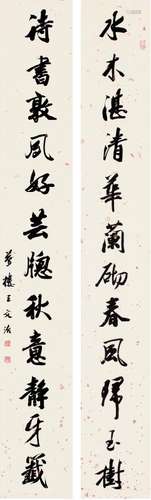 水木湛清華蘭砌春風歸玉樹
詩書敦夙好芸牕秋意靜牙籤
夢樓王文治